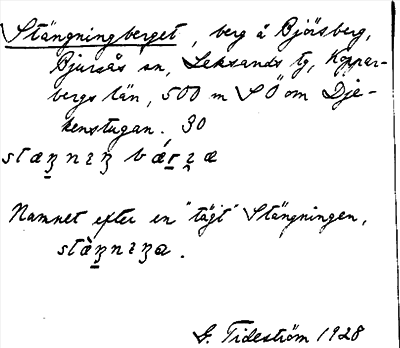 Stängningberget, berg å Björsberg,
Bjursås sn, Leksands tg, Koppar-
bergs län, 500 m SÖ om Dje-
kenstugan. 30
Namnet efter en "täjt" Stängningen,
G. Tideström 1928